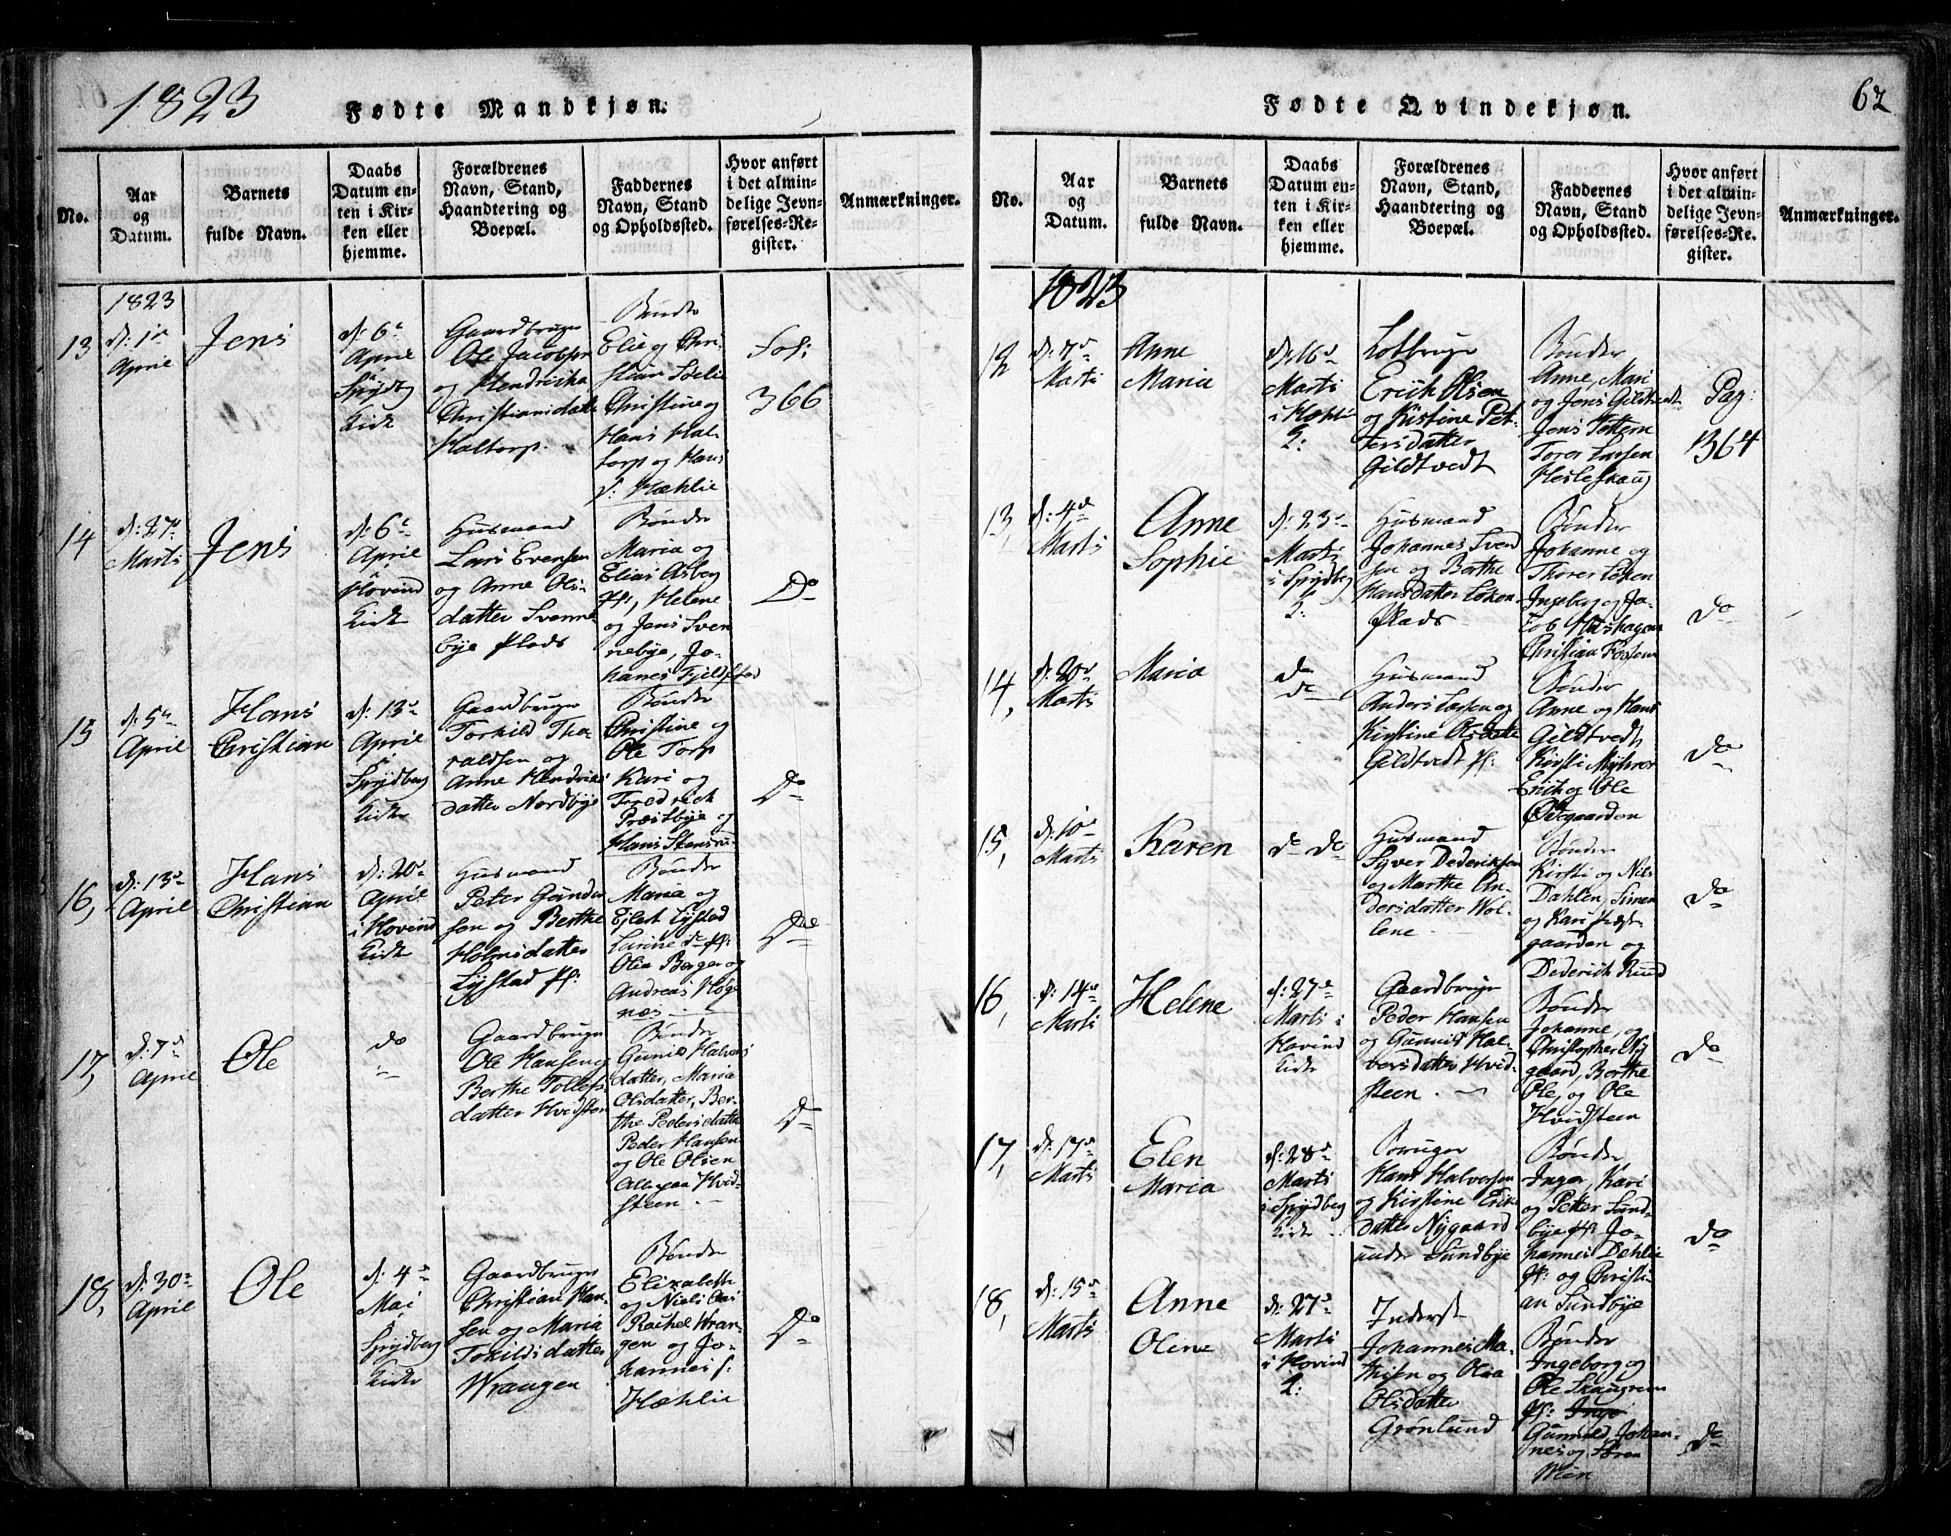 1823
Fødte Mandkjøn.
No.
Aar
og
Datum.
Barnets
fulde Navn.
Daabs
Datum en-
ten i Kir-
ken eller
hjemme.
Forældrenes
Navn, Stand,
Haandtering og
Boepæl.
Faddernes
Navn, Stand
og Opholdssted.
Hvor anført
i det almin-
delige Jevn-
førelses-Re-
gister.
Anmærkninger.
1823
13
d: 1n
April
Jens
d: 6n
April
Spydbg
Kirke
Gaardbruger
Ole Jacobsen
og Hendricka
Christiansdatter
Holtorp.
Bønder
Elie og Chri-
stian Sølie
Christine og
Hans Hal-
torp og Hans
s: Hæhlie
Fol:
366
14
d: 27de
Marts
Jens
d: 6n
April
Hovind
Kirke
Huusmand
Lars Evensen
og Anne Ols-
datter Svenne
bye Plads
Bønder
Maria og
Elias Asberg
Pl:, Helene
og Jens Sven
nebye, Jo-
hanes Fjeldstad
Do
15
d: 5te
April
Hans
Christian
d: 13de
April
Spydberg
Kirke
Gaardbruger
Torkild Tho-
raldsen og
Anne Hendrics
datter Nordbye
Bønder
Christine og
Ole Torp
Kari og
Fredrick
Præstbye og
Hans Stensru-
Do
16,
d: 13de
April
Hans
Christian
d: 20de
April
i Hovind
Kirke
Huusmand
Peter Gunder
sen og Berthe
Holmsdatter
Lystad Pl:
Bønder
Maria og
Ejlert Lystad
Larine do Pl:
Olia Berger og
Andreas Høg-
næs
Do
17,
d: 7de
April
Ole
do
Gaardbruger
Ole Hansen og
Berthe Tollefs-
datter Hvidsten
Bønder
Gunild Halvors
datter, Maria
Olsdatter, Ber-
the Pedersdatter
Peder Hansen
og Ole Olsen
Alle paa Hvid-
steen
Do
18,
d: 30te
April
Ole
d: 4de
Mai
Spydberg
Kirke
Gaardbruger
Christian Han-
sen og Maria
Tokildsdatter
Wrangen
Bønder
Elizabeth
og Niels Aas
Rachel Wran-
gen og Jo-
hannes s:
Hæhlie
Do
Fødte Qvindekjøn.
62
No.
Aar
og
Datum.
Barnets
fulde Navn.
Daabs
Datum en-
ten i Kir-
ken eller
hjemme.
Forældrenes
Navn, Stand,
Haandtering og
Boepæl.
Faddernes
Navn, Stand
og Opholdssted.
Hvor anført
i det almin-
delige Jevn-
førelses-Re-
gister.
Anmærkninger.
1823
12
d: 7de
Marts
Anne
Maria
d: 16de
Marts
Erich Olsen
og Kistine Pet-
tersdatter
Gildtvedt
Bønder
Anne, Mari
og Jens Gildtvedt
Jens Tøttern
Toror Larsen
Hesleskaug
Pag:
364
13,
d: 4de
Marts
Anne
Sophie
d: 23de
Marts
i Spydbg
K:
Huusmand
Johannes Svend
sen og Berthe
Hansdatter Løken-
Plads
Bønder
Johanne og
Thorer Løken
Ingeborg og Ja-
cob
Christian Fossum
do
14,
d: 20de
Marts
Maria
do
do
Huusmand
Anders Larsen og
Kistine Olsdatter
Gildtvedt Pl:
Bønder
Anne og Hans
Gildtvedt
Kirsti Myhrer
Erich og Ole
Østgaarden
do
15,
d: 10de
Marts
Karen
do do
Huusmand
Syver Dederiksen
og Marthe An-
dersdatter Wol-
lene
Bønder
Kirsti og Nils
Dahlen, Simen
og Kari
gaarden og
Dederich Ruud
do
16,
d: 14de
Marts
Helene
d: 27de
Marts i
Hovind
Kirke
Gaardbruger
Peder Hansen
og Gunnild Hal-
vorsdatter Hvid-
steen
Bønder
Johanne, og
Christopher Ny
gaard, Berthe
Ole, og Ole
Hvidsteen
do
17,
d: 17de
Marts
Elen
Maria
d: 28de
Marts
i Spydberg
Kirke
Bruger
Hans Halvorsen
og Kirstine Erik
datter Nygaard
under Sundbye
Bønder
Inger, Kari
og Petter Sund-
bye Pl: Jo-
hannes Dahlie
Pl: og Christi-
an Sundbye
do
18,
d: 15de
Marts
Anne
Oline
d: 27de
Marts
i Hovind
K:
Inderst
Johannes Ma-
thisen og Olia
Olsdatter
Grønlund
Bønder
Ingeborg og
Ole Skaugrem
Pl: Inge
Gunnild, Johan-
nes og Søren
Wiin
do